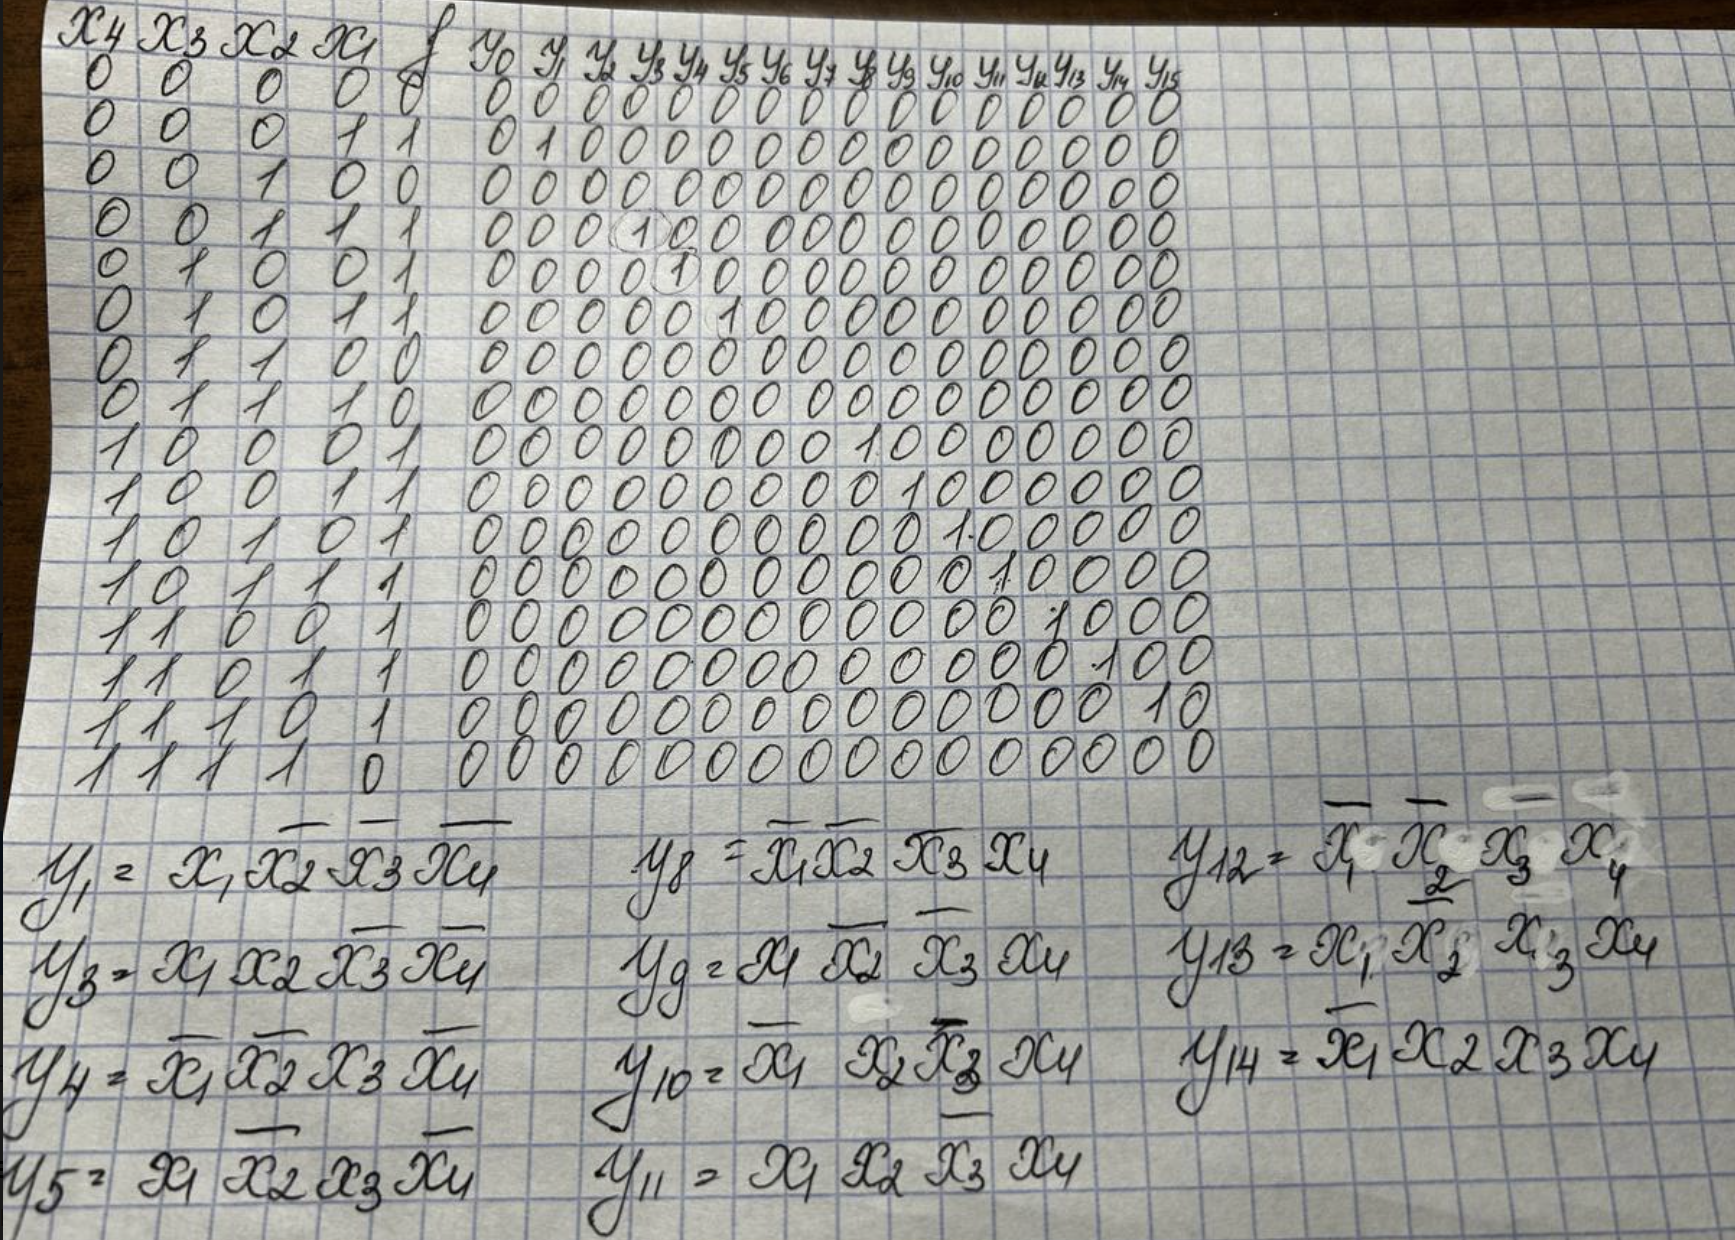 x4 x3 x2 x1 f y0 y1 y2 y3 y4 y5 y6 y7 y8 y9 y10 y11 y12 y13 y14 y15
0 0 0 0 0 0 0 0 0 0 0 0 0 0 0 0 0 0 0 0 0
0 0 0 1 1 0 1 0 0 0 0 0 0 0 0 0 0 0 0 0 0
0 0 1 0 0 0 0 0 0 0 0 0 0 0 0 0 0 0 0 0 0
0 0 1 1 1 0 0 0 1 0 0 0 0 0 0 0 0 0 0 0 0
0 1 0 0 1 0 0 0 0 1 0 0 0 0 0 0 0 0 0 0 0
0 1 0 1 1 0 0 0 0 0 1 0 0 0 0 0 0 0 0 0 0
0 1 1 0 0 0 0 0 0 0 0 0 0 0 0 0 0 0 0 0 0
0 1 1 1 0 0 0 0 0 0 0 0 0 0 0 0 0 0 0 0 0
1 0 0 0 1 0 0 0 0 0 0 0 0 1 0 0 0 0 0 0 0
1 0 0 1 1 0 0 0 0 0 0 0 0 0 1 0 0 0 0 0 0
1 0 1 0 1 0 0 0 0 0 0 0 0 0 0 1 0 0 0 0 0
1 0 1 1 1 0 0 0 0 0 0 0 0 0 0 0 1 0 0 0 0
1 1 0 0 1 0 0 0 0 0 0 0 0 0 0 0 0 1 0 0 0
1 1 0 1 1 0 0 0 0 0 0 0 0 0 0 0 0 0 1 0 0
1 1 1 0 1 0 0 0 0 0 0 0 0 0 0 0 0 0 0 1 0
1 1 1 1 0 0 0 0 0 0 0 0 0 0 0 0 0 0 0 0 0
y1 = x1 x̅2 x̅3 x̅4 y8 = x̅1 x̅2 x̅3 x4 y12 = x̅1 x̅2 x3 x4
y3 = x1 x2 x̅3 x̅4 y9 = x1 x̅2 x̅3 x4 y13 = x1 x̅2 x3 x4
y4 = x̅1 x̅2 x3 x̅4 y10 = x̅1 x2 x̅3 x4 y14 = x̅1 x2 x3 x4
y5 = x1 x̅2 x3 x̅4 y11 = x1 x2 x̅3 x4